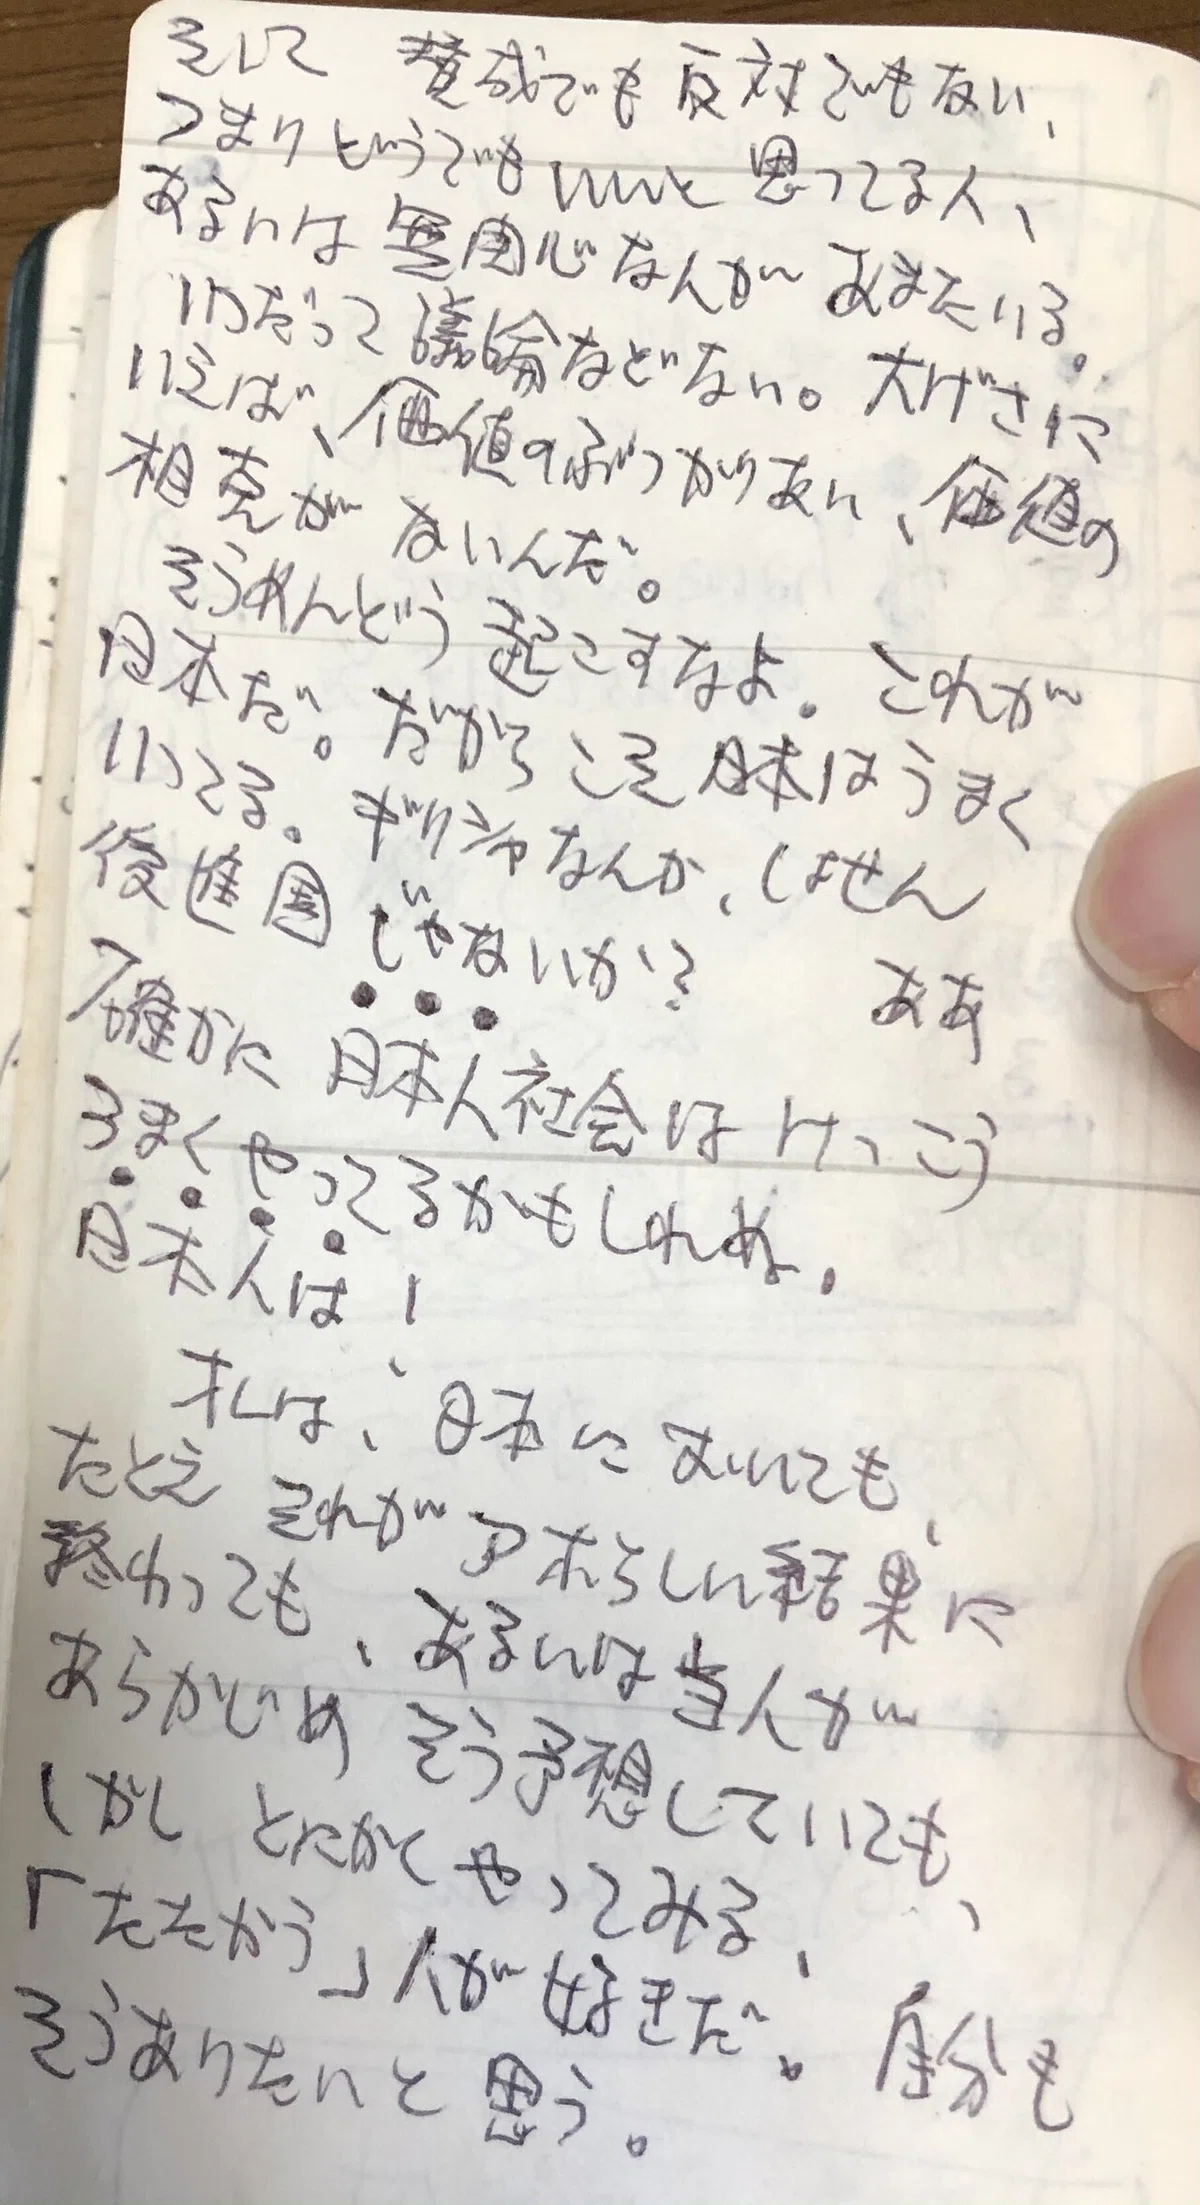 そして 賛成でも反対でもない、
つまりどうでもいいと思ってる人、
あるいは無関心なんがまたいる。
いつだって議論などない。大げさに
いえば、価値のぶつかりあい、価値の
相克がないんだ。
そうめんどう起こすなよ。これが
日本だ。だからこそ日本はうまく
いってる。ギリシャなんか、しょせん
後進国じゃないか? ああ
確かに日本人社会はけっこう
うまくやってるかもしれぬ。
日本人は!
オレは、日本においても、
たとえそれがアホらしい結果に
終わっても、あるいは当人が
あらかじめそう予想していても、
しかしとにかくやってみる、
「たたかう」人が好きだ。自分も
そうありたいと思う。